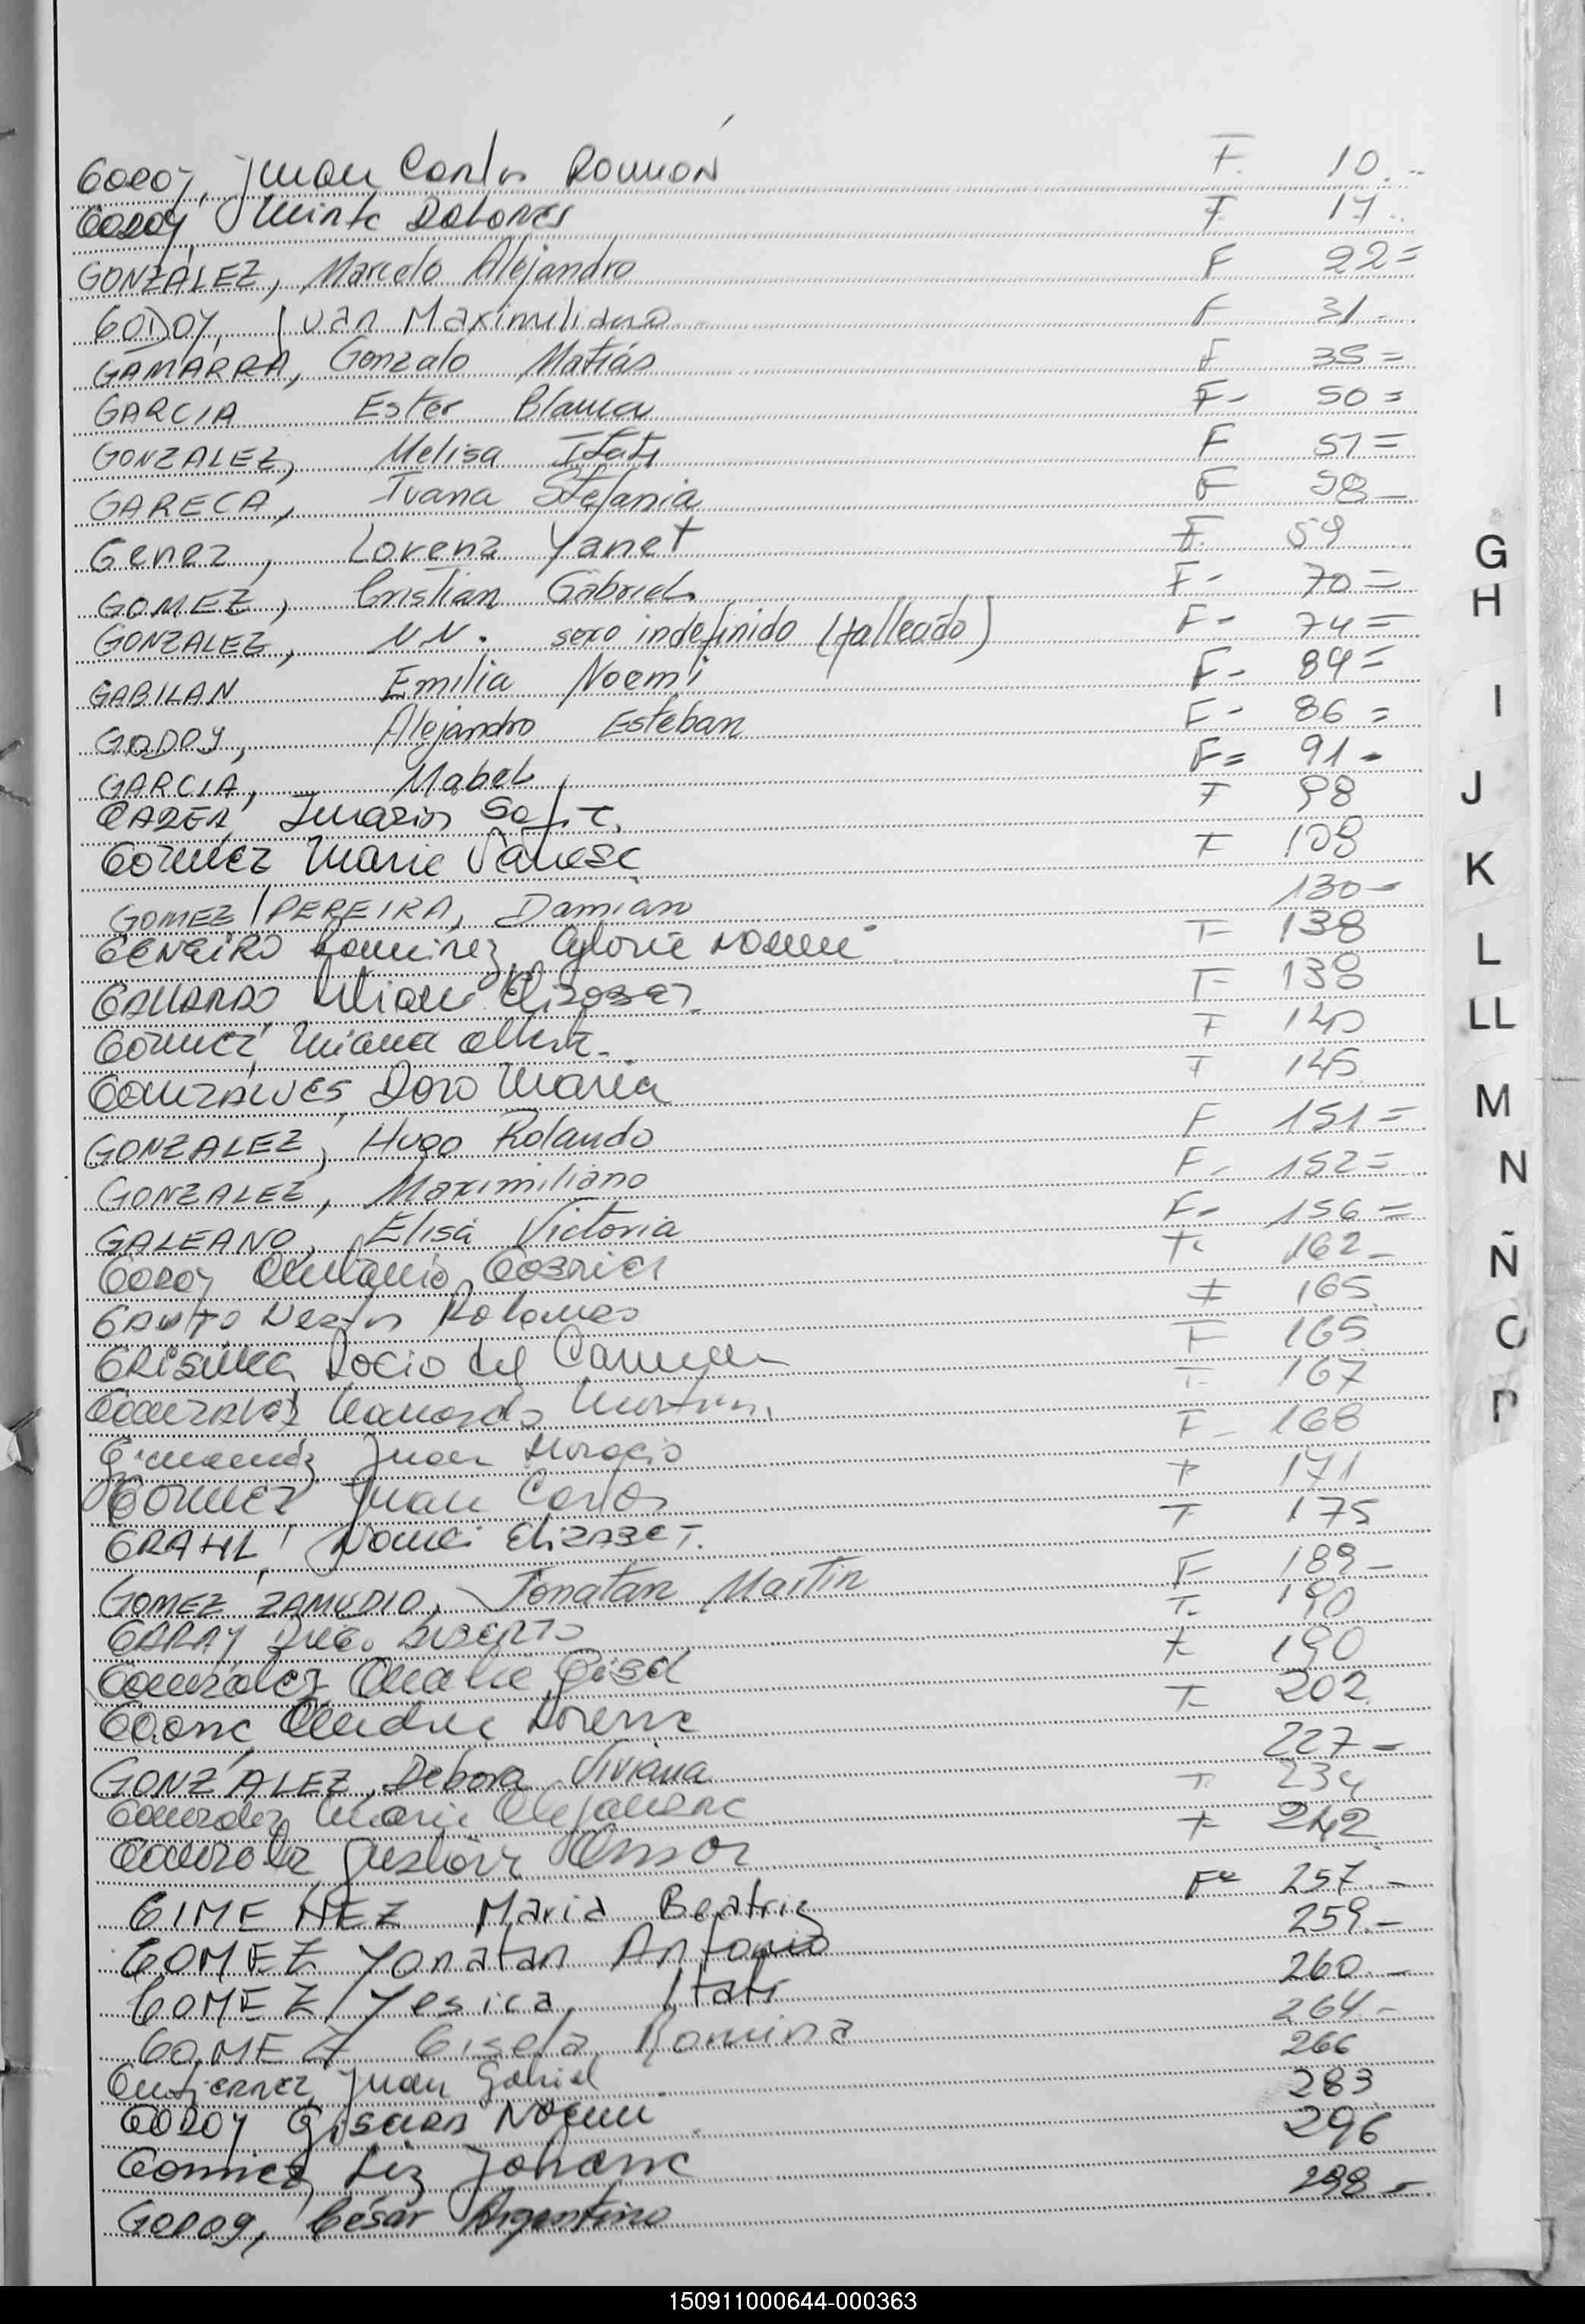 GODOY, Juan Carlos Ramón F. 10.--
GODOY, Mirta Dolores F 17..
GONZÁLEZ, Marcelo Alejandro F 22=
GODOY, Ivan Maximiliano F 31-
GAMARRA, Gonzalo Matías F 35=
GARCIA Ester Blanca F- 50=
GONZALEZ, Melisa Itati F 51=
GARECA, Ivana Stefania F 58-
Genez, Lorena Yanet F. 59
GOMEZ, Cristian Gabriel F- 70=
GONZALEZ, NN. sexo indefinido (fallecido) F- 74=
GABILAN Emilia Noemi F- 84=
GODOY, Alejandro Esteban F- 86=
GARCIA, Mabel F= 91-
F 98
GOMEZ Maria Vanesa F 108
GOMEZ/PEREIRA, Damián 130-
Ramirez, Gloria Noemi F 138
GALLARDO Liliana Elizabet F 138
GOMEZ F 140
GONZALVES, Dora Maria F 145
GONZALEZ, Hugo Rolando F 151=
GONZALEZ, Maximiliano F- 152=
GALEANO, Elisa Victoria F- 156=
GODOY Gabriel F- 162-
GAUTO Nestor F 165
Rocio del Carmen F 165
GONZALEZ F 167
Gimenez Juan Horacio F- 168
GOMEZ Juan Carlos F 171
GRAHL, Noemi ELIZABET. F 175
GOMEZ ZAMUDIO, Jonatan Martin F 189-
GARAY F- 190
Gonzalez F 190
Lorena F 202
GONZÁLEZ, Debora Viviana 227-
Gonzalez Maria Alejandra F 234
Gonzalez Gustavo Omar F 242
GIMENEZ Maria Beatriz Fº 257.-
GOMEZ Yonatan Antonio 259.-
GOMEZ Yesica Itati 260.-
GOMEZ Gisela Romina 264-
Gutierrez, Juan Gabriel 266
GODOY Noemi 283
Gomez, Liz Johana 296
GODOY, César Argentino 298-
G
H
I
J
K
L
LL
M
N
Ñ
O
P
150911000644-000363